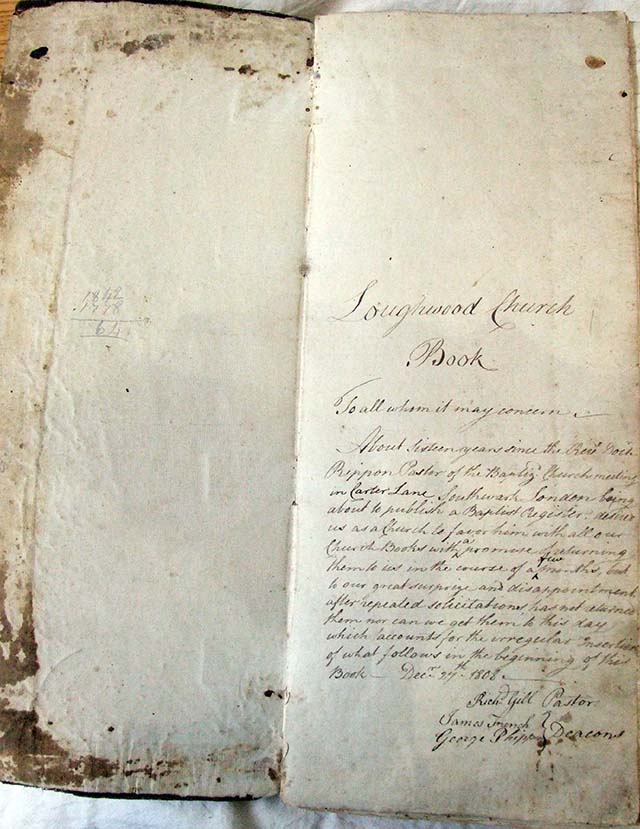 1842
1778
64
Loughwood Church
Book
To all whom it may concern
About sixteen years since the Revd Doctr
Rippon Pastor of the Baptist Church meeting
in Carter Lane Southwark London being
about to publish a Baptist Register desired
us as a Church to favor him with all our
Church Books with a promise of returning
them to us in the course of a few months, but
to our great surprize and disappointment
after repeated solicitations has not returned
them nor can we get them to this day
which accounts for the irregular Insertion
of what follows in the beginning of this
Book — Decr 27th 1808.
Richd Gill Pastor
James French
George Phipp Deacons